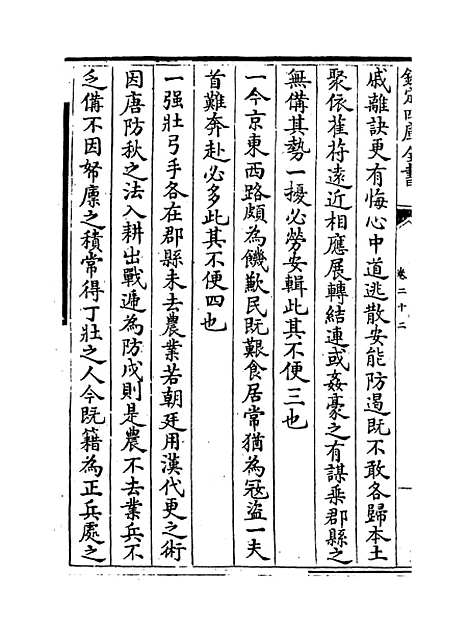 欽定四庫全書
卷二十二
戚離訣更有悔心中道逃散安能防遏既不敢各歸本土
聚依萑苻遠近相應展轉結連或姦豪之有謀乘郡縣之
無備其勢一擾必勞安輯此其不便三也
一今京東西路頗為饑歉民既艱食居常猶為冦盜一夫
首難奔赴必多此其不便四也
一强壯弓手各在郡縣未去農業若朝廷用漢代更之術
因唐防秋之法入耕出戰遞為防戍則是農不去業兵不
乏備不因帑廪之積常得丁壯之人今既籍為正兵處之